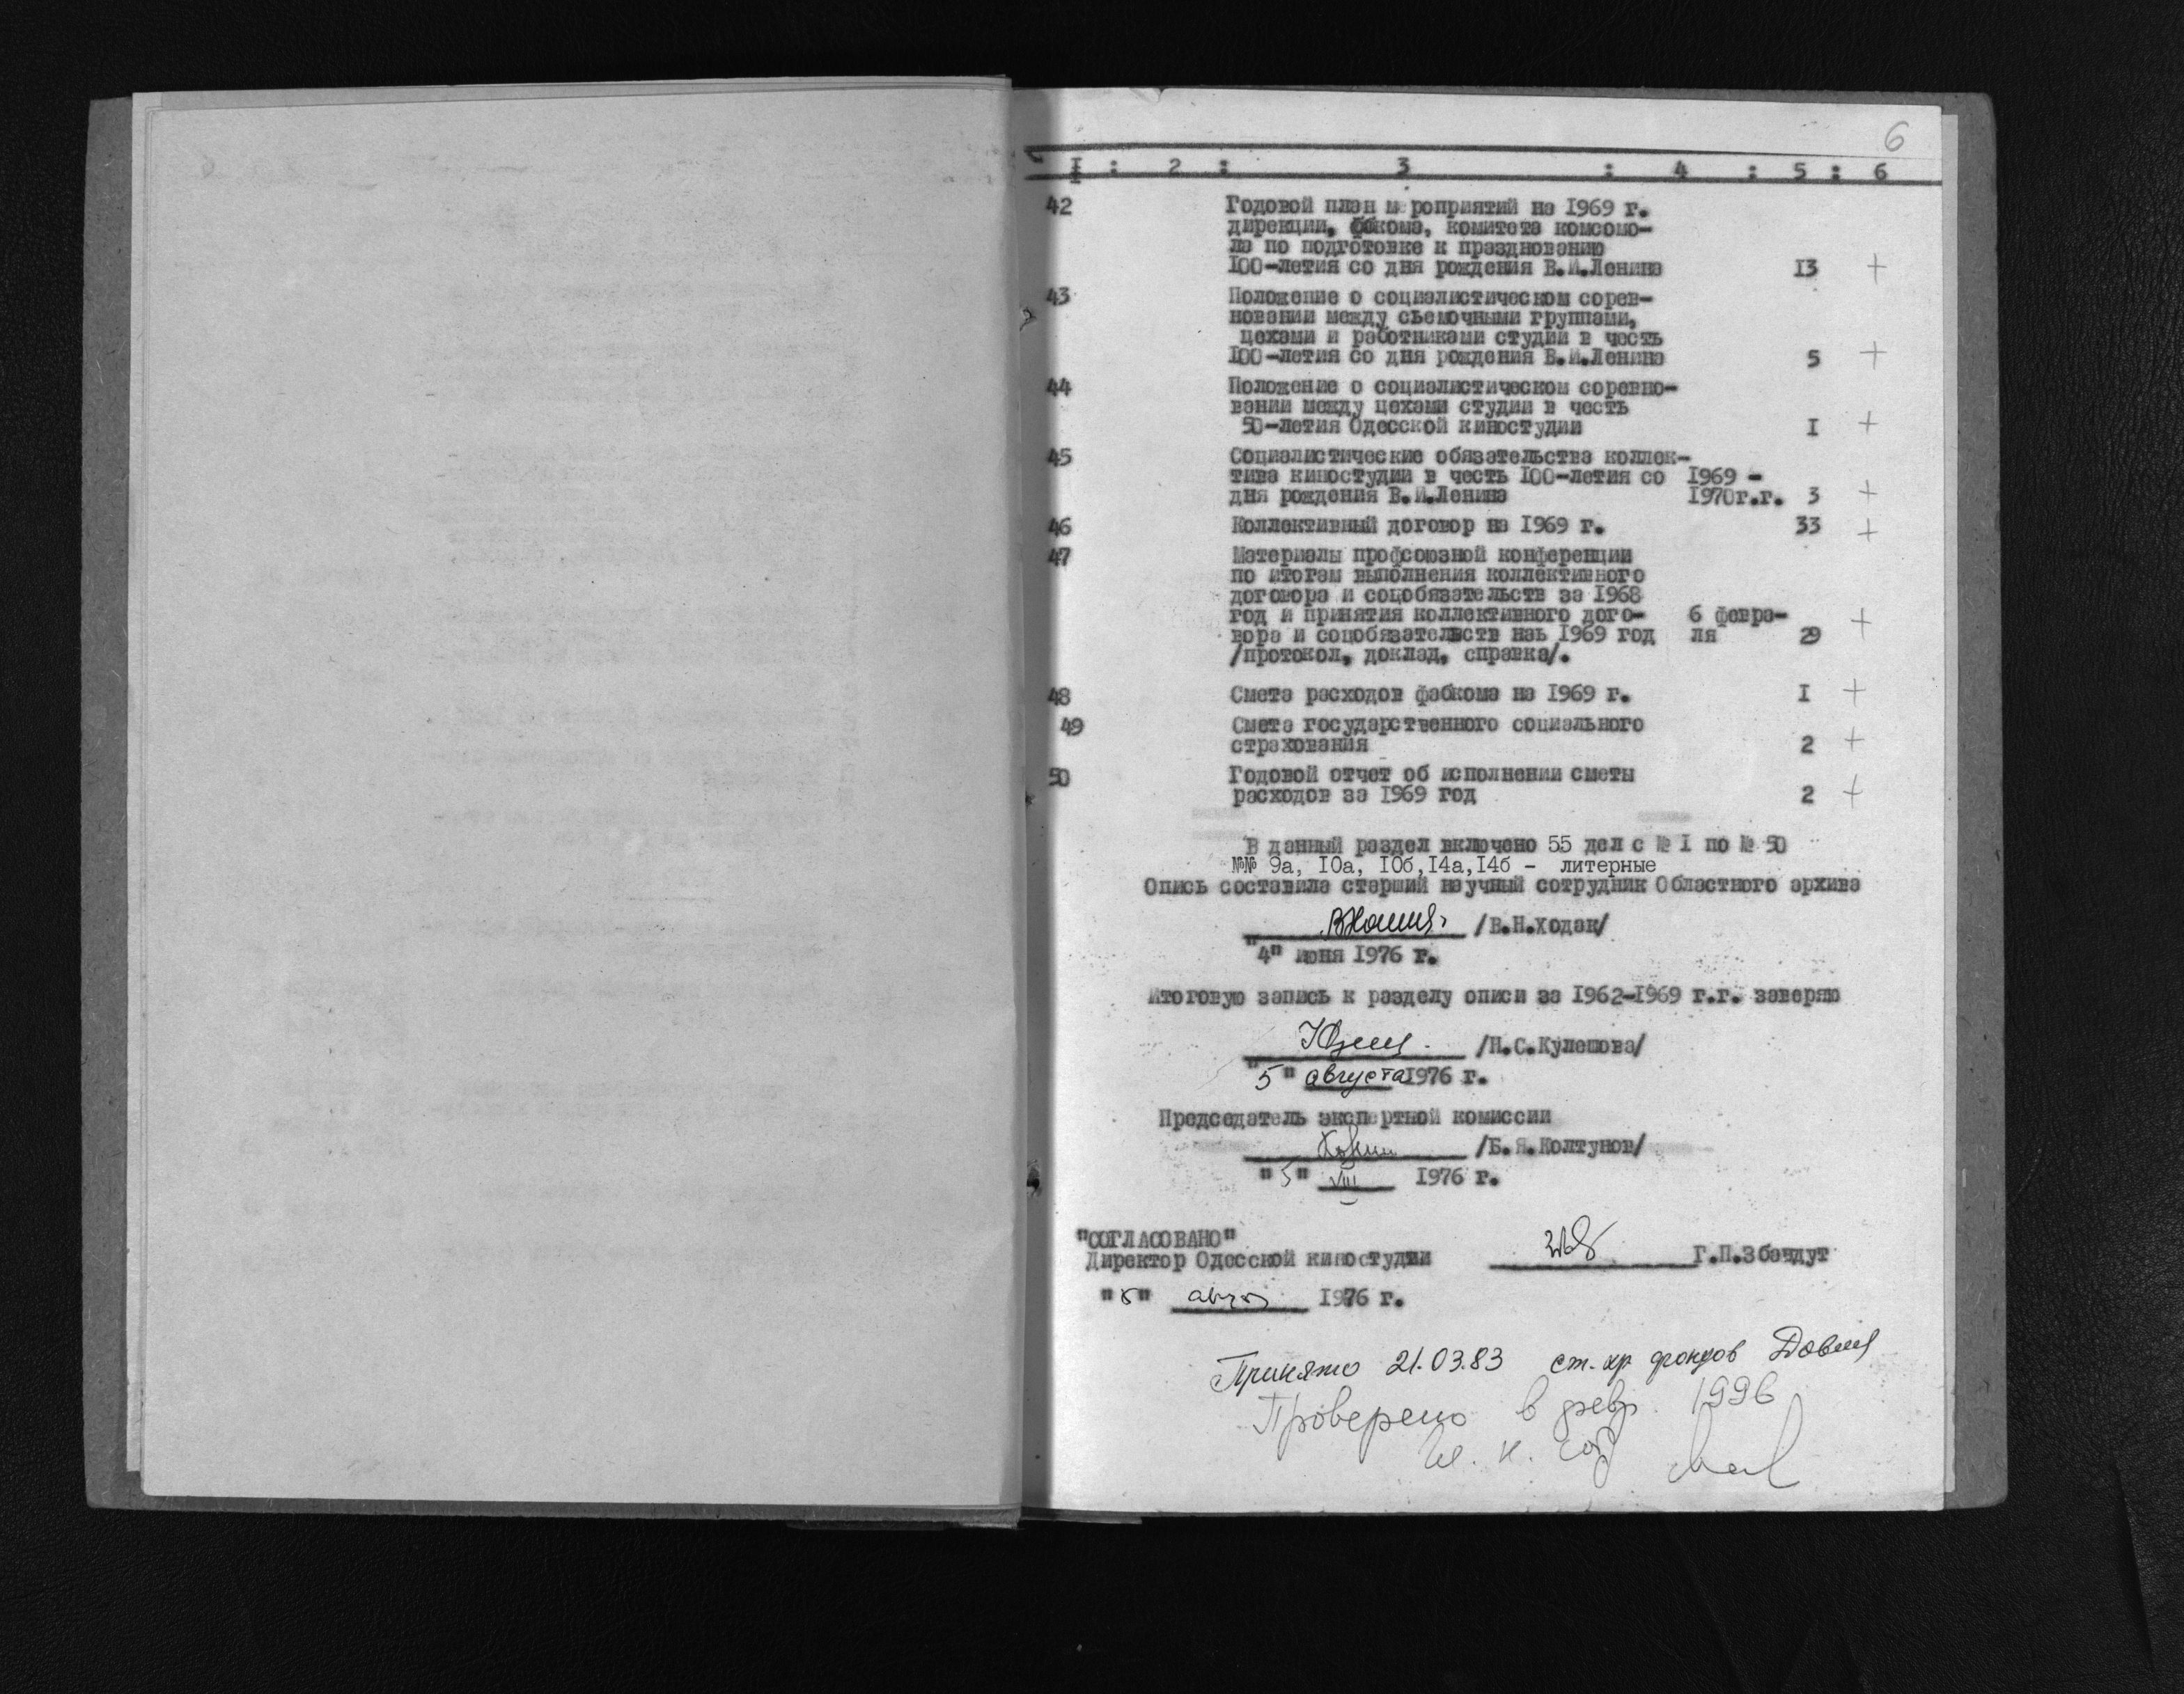 6
I : 2 : 3 : 4 : 5 : 6
42 Годовой план мероприятий на 1969 г.
дирекции, фабкома, комитета комсомо-
ла по подготовке к празднованию
100-летия со дня рождения В.И.Ленина 13 +
43 Положение о социалистическом сорев-
новании между сьемочными группами,
цехами и работниками студии в честь
100-летия со дня рождения В.И.Ленина 5 +
44 Положение о социалистическом соревно-
вании между цехами студии в честь
50-летия Одесской киностудии I +
45 Социалистические обязательства коллек-
тива киностудии в честь 100-летия со 1969 -
дня рождения В.И.Ленина 1970г.г. 3 +
46 Коллективный договор на 1969 г. 33 +
47 Материалы профсоюзной конференции
по итогам выполнения коллективного
договора и соцобязательств за 1968
год и принятия коллективного дого- 6 февра- +
вора и соцобязательств наь 1969 год ля 29
/протокол, доклад, справка/.
48 Смета расходов фабкома на 1969 г. I +
49 Смета государственного социального
страхования 2 +
50 Годовой отчет об исполнении сметы
расходов за 1969 год 2 +
В данный раздел включено 55 дел с № I по № 50
№№ 9а, 10а, 10б,14а,14б - литерные
Опись составила старший научный сотрудник Областного архива
/В.Н.Ходак/
"4" июня 1976 г.
Итоговую запись к разделу описи за 1962-1969 г.г. заверяю
/Н.С.Кулешова/
"5" августа 1976 г.
Председатель экспертной комиссии
/Б.Я.Колтунов/
"5" VIII 1976 г.
"СОГЛАСОВАНО"
Директор Одесской киностудии Г.П.Збандут
1976 г.
Принято 21.03.83 ст. хр фондов
Проверено в февр. 1996